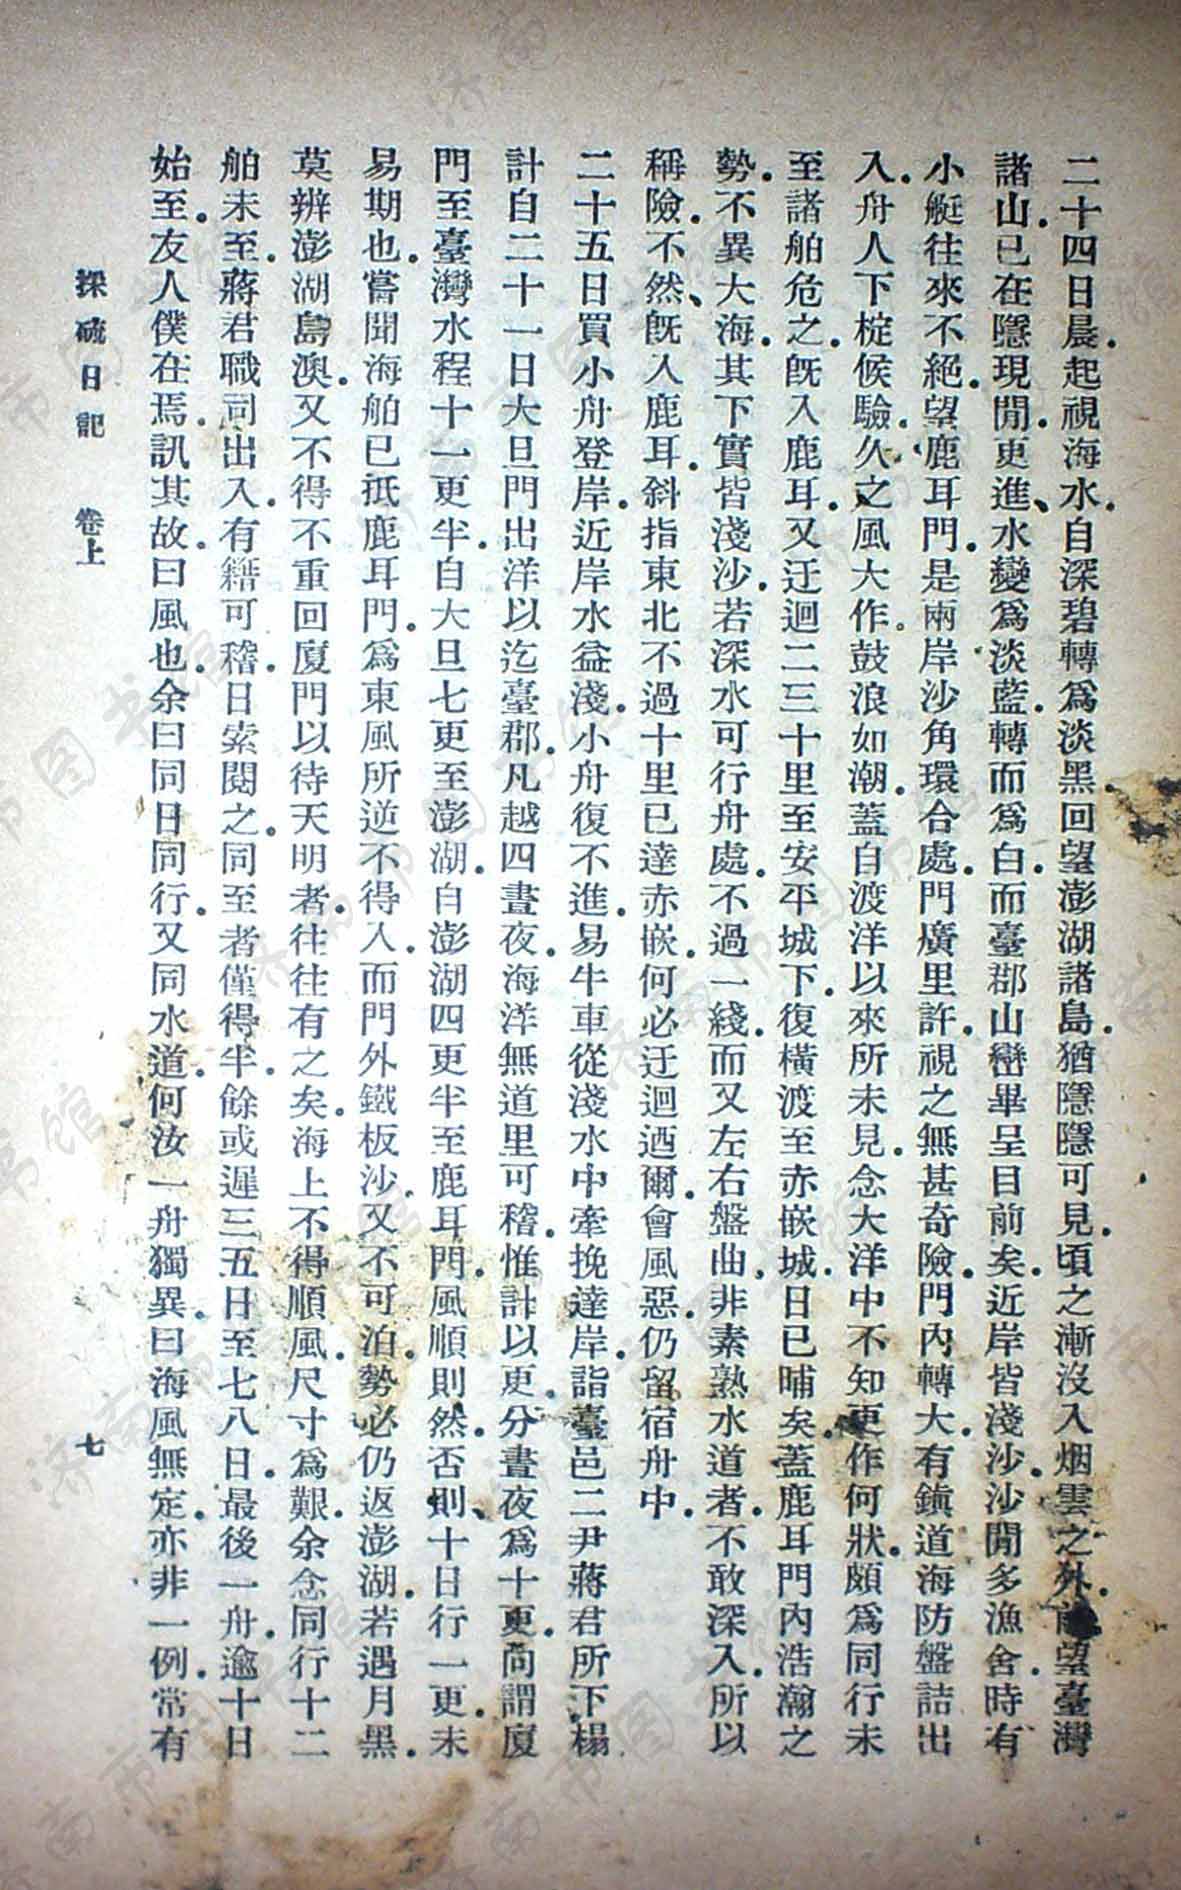 二十四日晨起視海水自深碧轉爲淡黑回望澎湖諸島猶隱隱可見頃之漸沒入烟雲之外前望臺灣
諸山已在隱現閒更進水變爲淡藍轉而爲白而臺郡山巒畢呈目前矣近岸皆淺沙沙閒多漁舍時有
小艇往來不絕望鹿耳門是兩岸沙角環合處門廣里許視之無甚奇險門內轉大有鎮道海防盤詰出
入舟人下椗候驗久之風大作鼓浪如潮蓋自渡洋以來所未見念大洋中不知更作何狀頗爲同行未
至諸舶危之既入鹿耳又迂迴二三十里至安平城下復橫渡至赤嵌城日已晡矣蓋鹿耳門內浩瀚之
勢不異大海其下實皆淺沙若深水可行舟處不過一綫而又左右盤曲非素熟水道者不敢深入所以
稱險不然既入鹿耳斜指東北不過十里已達赤嵌何必迂迴迺爾會風惡仍留宿舟中
二十五日買小舟登岸近岸水益淺小舟復不進易牛車從淺水中牽挽達岸詣臺邑二尹蔣君所下榻
計自二十一日大旦門出洋以迄臺郡凡越四晝夜海洋無道里可稽惟計以更分晝夜爲十更向謂廈
門至臺灣水程十一更半自大旦七更至澎湖自澎湖四更半至鹿耳門風順則然否則十日行一更未
易期也嘗聞海舶已抵鹿耳門爲東風所逆不得入而門外鐵板沙又不可泊勢必仍返澎湖若遇月黑
莫辨澎湖島澳又不得不重回廈門以待天明者往往有之矣海上不得順風尺寸爲艱余念同行十二
舶未至蔣君職司出入有籍可稽日索閱之同至者僅得半餘或遲三五日至七八日最後一舟逾十日
始至友人僕在焉訊其故曰風也余曰同日同行又同水道何汝一舟獨異曰海風無定亦非一例常有
採硫日記 卷上 七